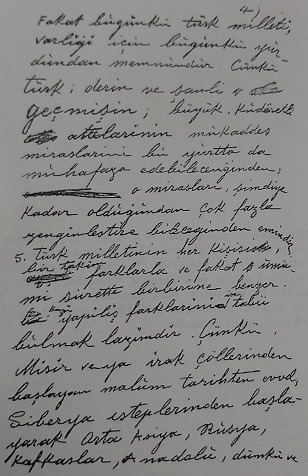 4)
Fakat bugünkü türk milleti,
varlığı için bugünkü yur
dundan memnundur. Çünkü
türk; derin ve şanlı
geçmişin; büyük, kudretli
atalarının mukaddes
miraslarını bu yurtta da
muhafaza edebileceğinden,
o mirasları, şimdiye
kadar olduğundan çok fazla
zenginleştire bileceğinden emindir.
5. türk milletinin her kişisi
bir takım farklarla ve fakat umu
mi surette birbirine benzer.
yapılış farklarını tabii
bulmak lazımdır. Çünkü,
Mısır ve ya ırak çöllerinden
başlayan malûm tarihten evvel,
Siberya isteplerinden başla-
yarak Orta Asiya, Rusya,
Kafkaslar, Anadolu, dünkü ve